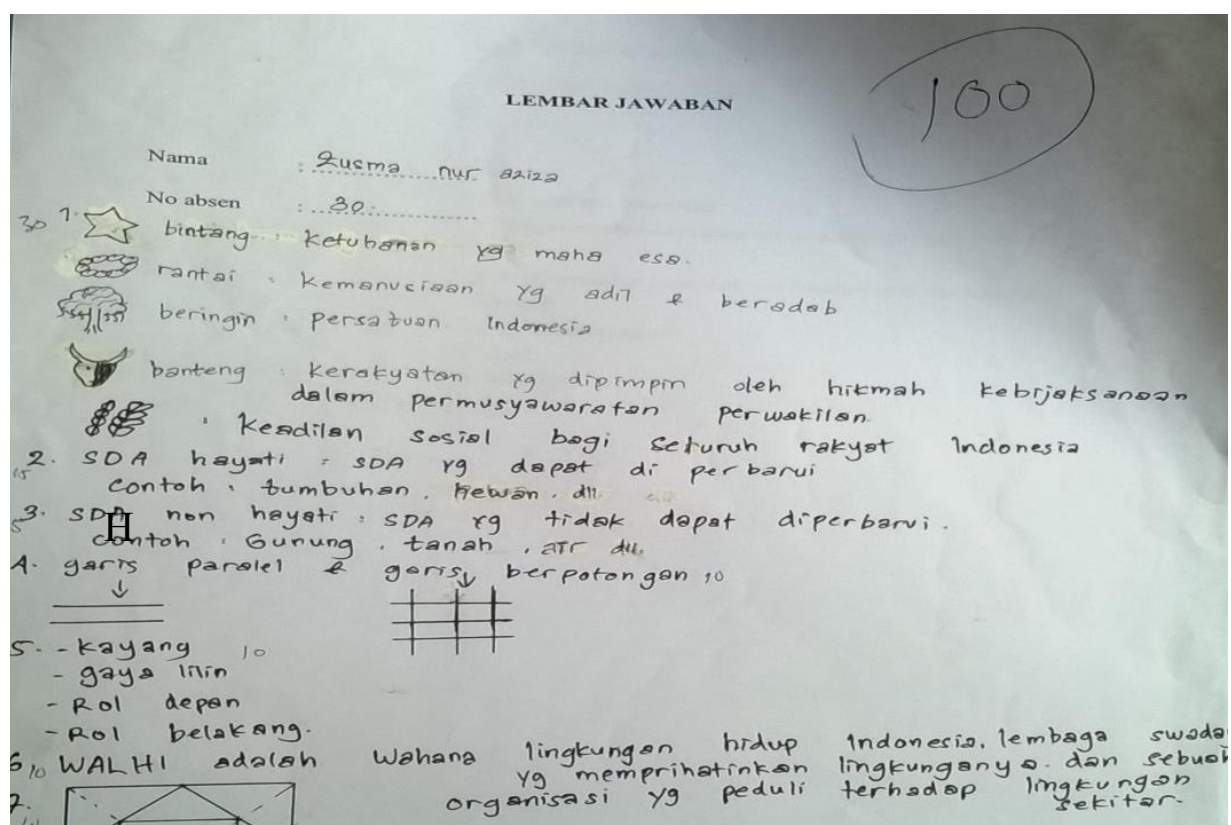 LEMBAR JAWABAN
100
Nama : Zusma nur aziza
No absen : 30
30 1. bintang : Ketuhanan yg maha esa.
rantai : Kemanusiaan yg adil & beradab
beringin : persatuan Indonesia
banteng : Kerakyatan yg dipimpin oleh hikmah kebijaksanaan
dalam permusyawaratan perwakilan.
: Keadilan sosial bagi seluruh rakyat Indonesia
2. SDA hayati : SDA yg dapat di perbarui
15
contoh : tumbuhan, hewan, dll.
3. SDA non hayati : SDA yg tidak dapat diperbarui.
H
contoh : Gunung, tanah, air dll.
4. garis paralel & garis berpotongan 10
5. - kayang 10
- gaya lilin
- Rol depan
- Rol belakang.
6. 10 WALHI adalah Wahana lingkungan hidup Indonesia, lembaga swada
yg memprihatinkan lingkunganya. dan sebuah
organisasi yg peduli terhadap lingkungan
sekitar.
7.